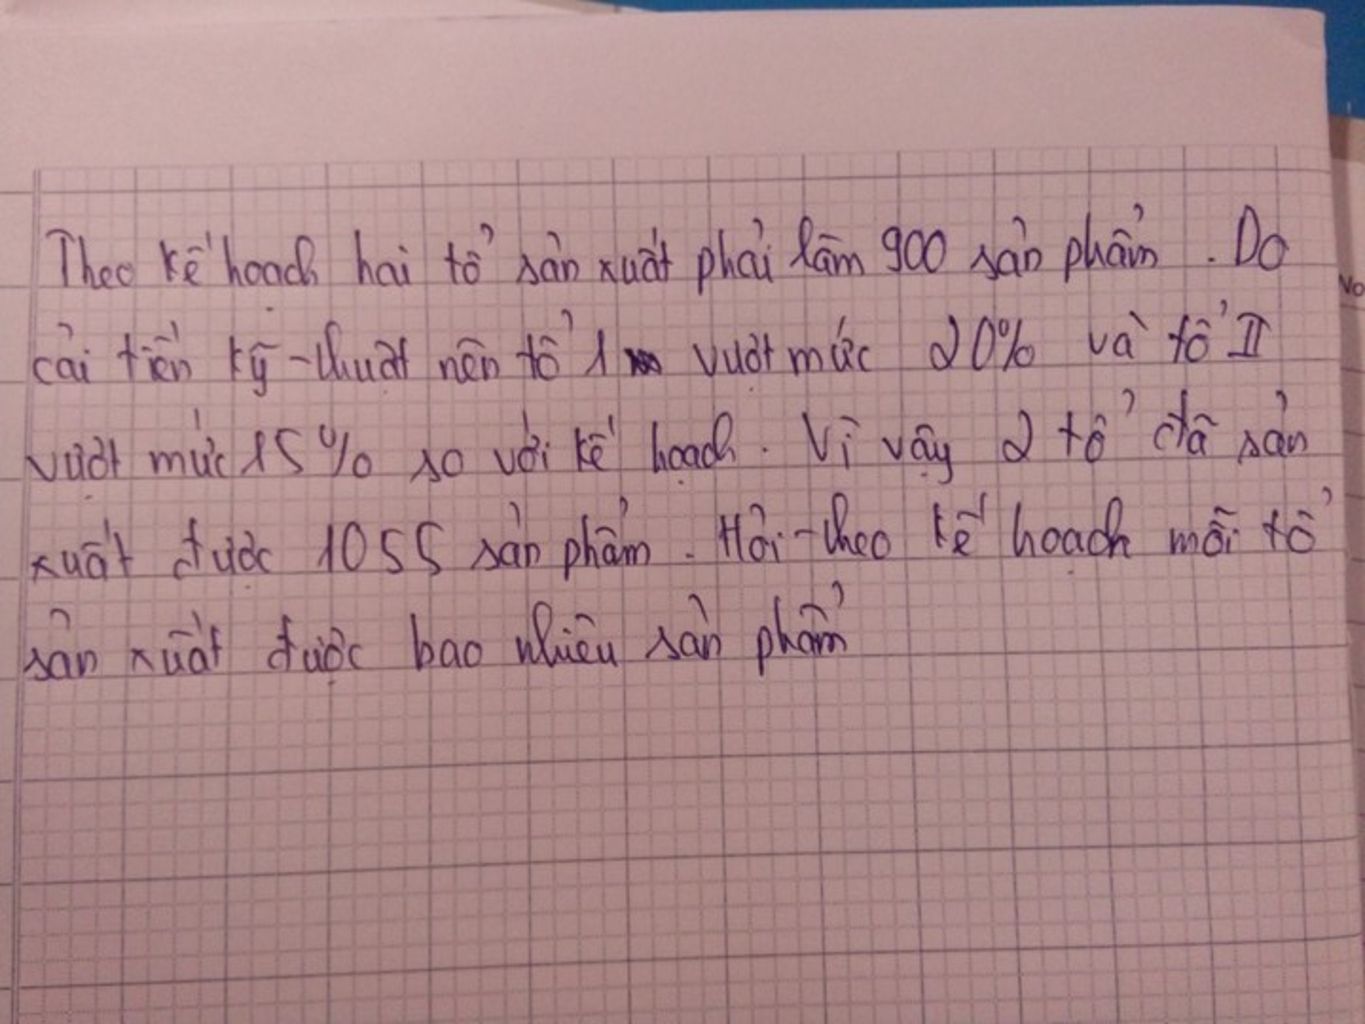 Theo kế hoạch hai tổ sản xuất phải làm 900 sản phẩm. Do
cải tiến kỹ thuật nên tổ 1 vượt mức 20% và tổ II
vượt mức 15% so với kế hoạch. Vì vậy 2 tổ đã sản
xuất được 1055 sản phẩm. Hỏi theo kế hoạch mỗi tổ
sản xuất được bao nhiêu sản phẩm